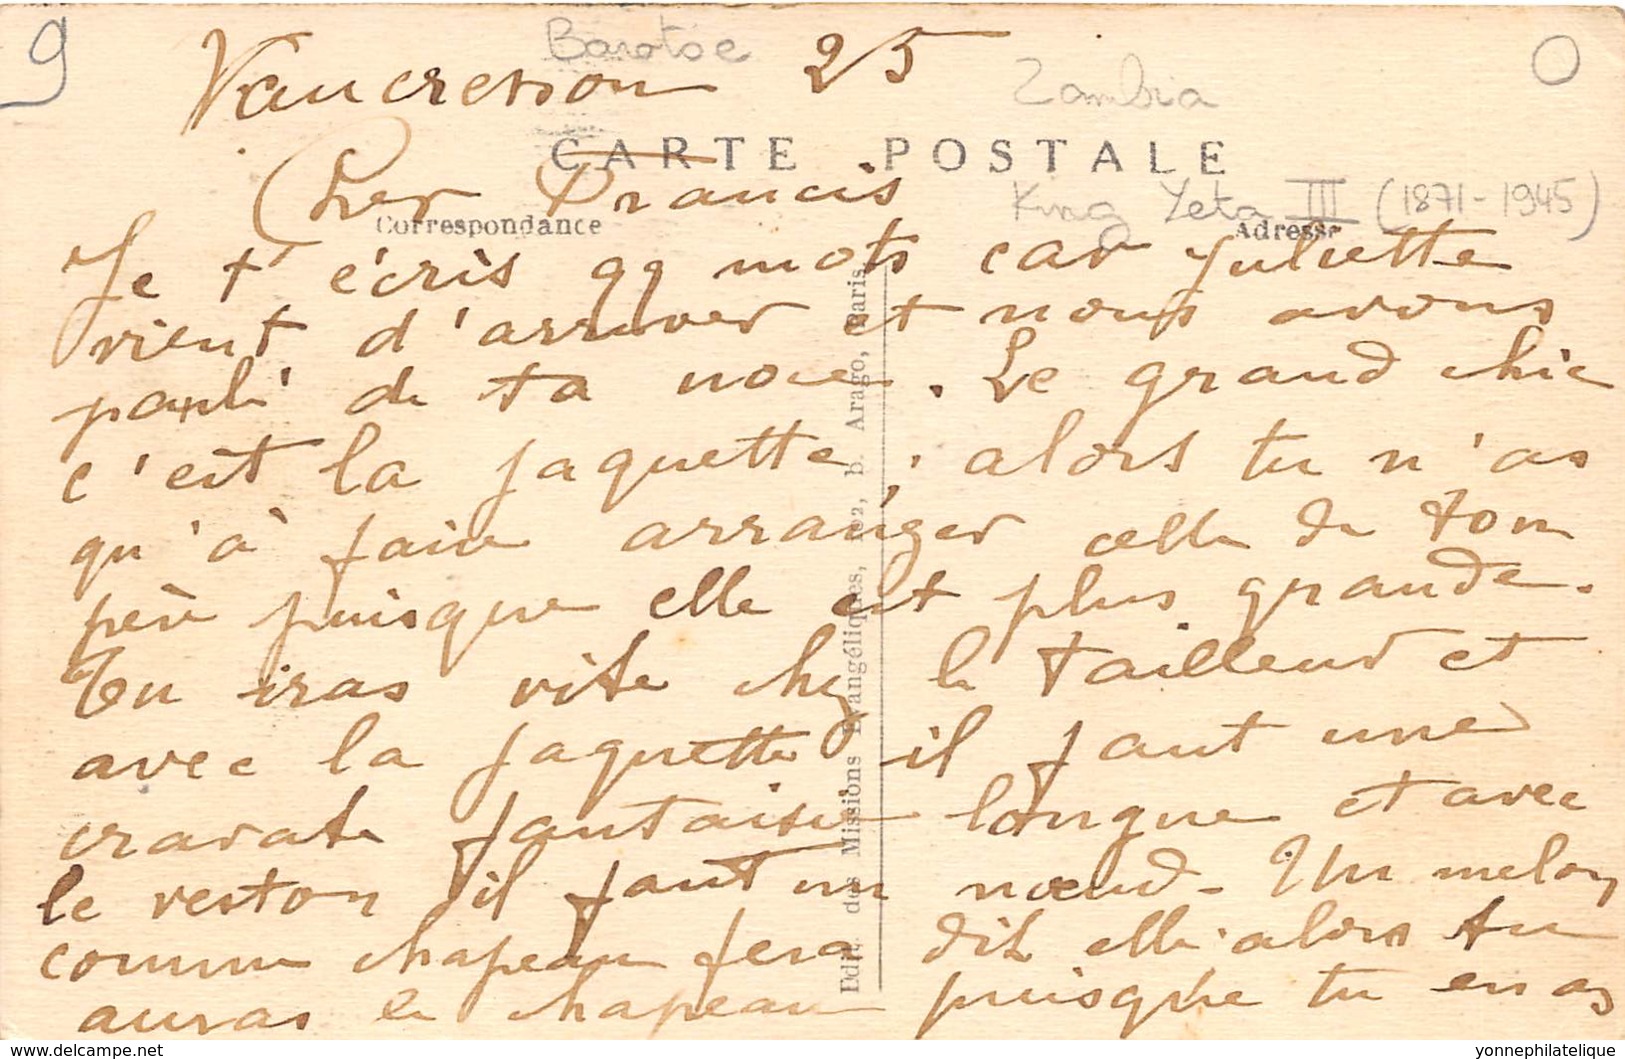 9
Barotse
Vaucresson 25
Zambia
CARTE POSTALE
Cher Francis
King Yeta III (1871-1945)
Correspondance
Adresse
Je t'écris qq mots car Juliette
vient d'arriver et nous avons
parlé de ta noce. Le grand chic
c'est la jaquette; alors tu n'as
qu'à faire arranger celle de ton
père puisque elle est plus grande.
Tu iras vite chez le tailleur et
avec la jaquette il faut une
cravate fantaisie longue et avec
le veston il faut un nœud - Un melon
comme chapeau fera dit elle alors tu
auras le chapeau puisque tu en as
Edit. des Missions Evangéliques, 102, b. Arago, Paris.
yonnephilatelie.delcampe.net